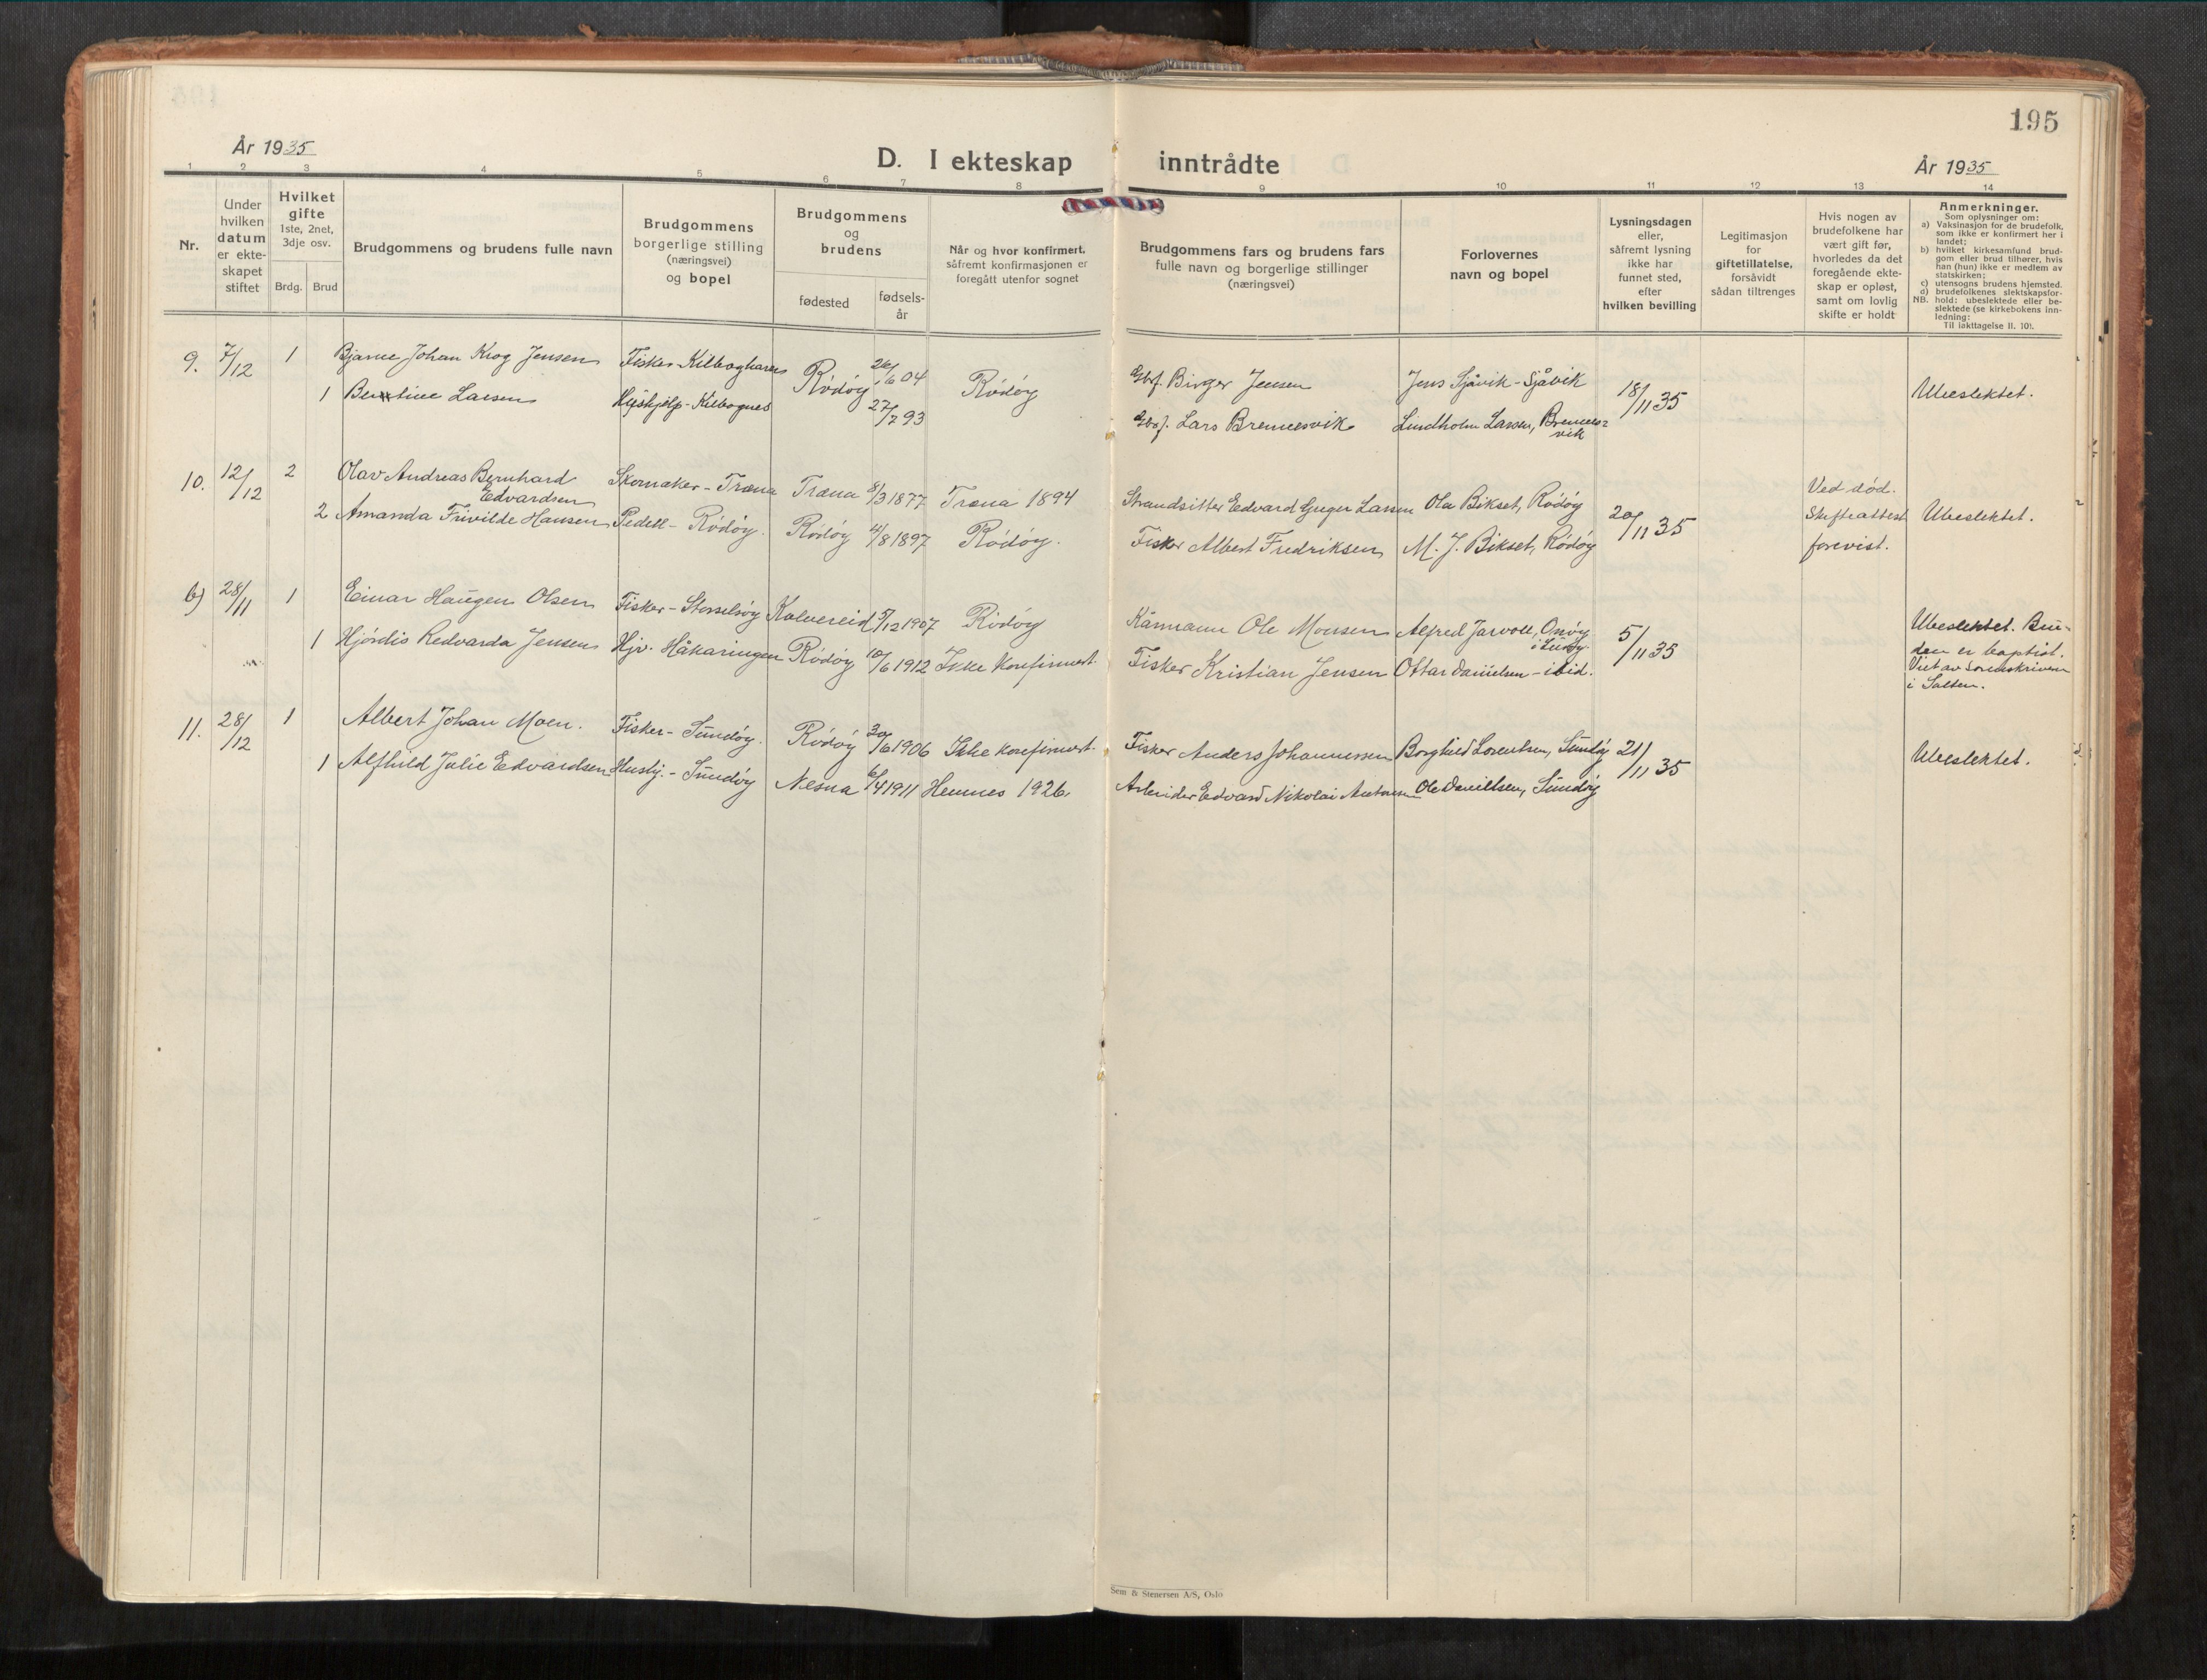 195
År 1935
D. I ekteskap inntrådte
År 1935
1 2 3 4 5 6 7 8 9 10 11 12 13 14
Nr.
Under
hvilken
datum
er ekte-
skapet
stiftet
Hvilket
gifte
1ste, 2net,
3dje osv.
Brdg. Brud
Brudgommens og brudens fulle navn
Brudgommens
borgerlige stilling
(næringsvei)
og bopel
Brudgommens
og
brudens
fødested
fødsels-
år
Når og hvor konfirmert,
såfremt konfirmasjonen er
foregått utenfor sognet
Brudgommens fars og brudens fars
fulle navn og borgerlige stillinger
(næringsvei)
Forlovernes
navn og bopel
Lysningsdagen
eller,
såfremt lysning
ikke har
funnet sted,
efter
hvilken bevilling
Legitimasjon
for
giftetillatelse,
forsåvidt
sådan tiltrenges
Hvis nogen av
brudefolkene har
vært gift før,
hvorledes da det
foregående ekte-
skap er opløst,
samt om lovlig
skifte er holdt
Anmerkninger.
Som oplysninger om:
a) Vaksinasjon for de brudefolk,
som ikke er konfirmert her i
landet;
b) hvilket kirkesamfund brud-
gom eller brud tilhører, hvis
han (hun) ikke er medlem av
statskirken;
c) utensogns brudens hjemsted.
d) brudefolkenes slektskapsfor-
NB. hold: ubeslektede eller be-
slektede (se kirkebokens inn-
ledning:
Til iakttagelse II. 10).
9. 7/12 1 Bjarne Johan Krog Jensen Fisker - Kilboghavn Rødøy 26/6 04 Rødøy Gbrf. Birger Jensen Jens Sjåvik - Sjåvik 18/11 35 Ubeslektet.
1 Bentine Larsen Hushjelp - Kilbognes 27/2 93 Gbrf. Lars Brennesvik Lindholm Larsen, Brennes-
vik
10. 12/12 2 Olav Andreas Bernhard
Edvardsen Skomaker - Træna Træna 8/3 1877 Træna 1894 Strandsitter Edvard Greger Larsen Ola Bikset, Rødøy 20/11 35 Ved død.
Skifteattest
forevist. Ubeslektet.
2 Amanda Frivilde Hansen Pedell - Rødøy. Rødøy 4/8 1897 Rødøy. Fisker Albert Fredriksen M. J. Bikset, Rødøy
b) 28/11 1 Einar Haugen Olsen Fisker - Storselsøy Kalvereid 5/12 1907 Rødøy Kårmann Ole Monsen Alfred Jarvoll, Onøy
i Lurøy. 5/11 35 Ubeslektet. Bru-
den er baptist.
Viet av Sorenskriveren
i Salten.
1 Hjørdis Redvarda Jensen Hjv. Håkaringen Rødøy 10/6 1912 Ikke konfirmert. Fisker Kristian Jensen Ottar Danielsen - ibid.
11. 28/12 1 Albert Johan Moen. Fisker - Sundøy. Rødøy 30/6 1906 Ikke konfirmert. Fisker Anders Johannessen Borghild Lorentsen, Sundøy 21/11 35 Ubeslektet.
1 Alfhild Julie Edvardsen Hushj. - Sundøy Nesna 6/4 1911 Hemnes 1926. Arbeider Edvard Nikolai Antonsen Ole Daniellsen, Sundøy
Sem & Stenersen A/S, Oslo